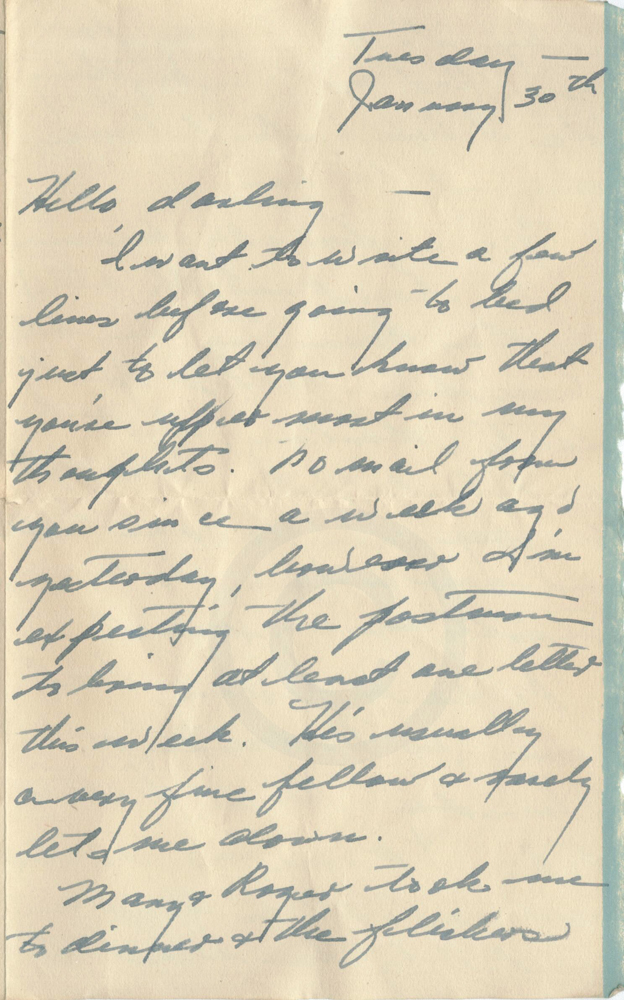 Tuesday —
January 30th
Hello darling —
I want to write a few
lines before going to bed
just to let you know that
you're uppermost in my
thoughts. No mail from
you since a week ago
yesterday, however I'm
expecting the postman
to bring at least one letter
this week. He's usually
a very fine fellow & rarely
lets me down.
Mary & Roger took me
to dinner & the flickers